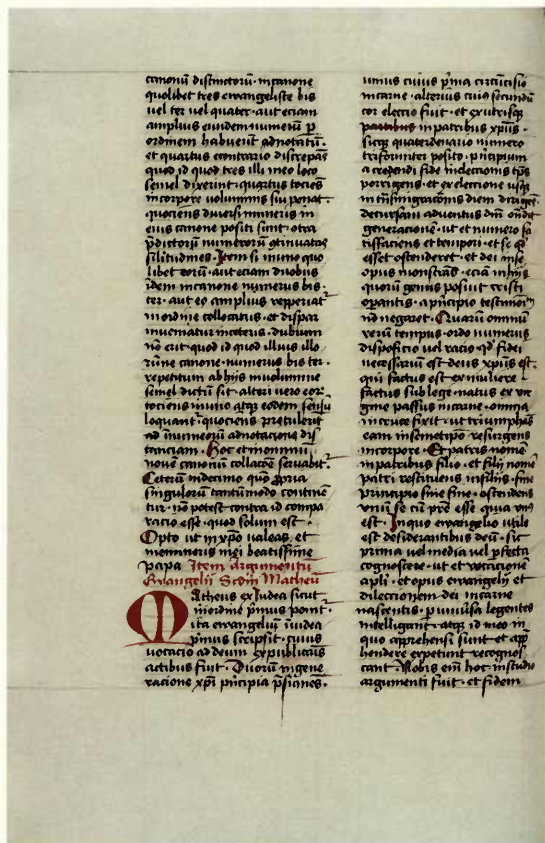 canonū distinctorū · in canone
quolibet tres ewangeliste bis
uel ter uel quater · aut eciam
amplius eiusdem numerū p̄
ordinem habuerūt adnotatū ·
et quartus econtrario discrepās
quod id quod tres illi in eo loco
semel dixerint · quartus tociēs
in corpore voluminis sui ponat ·
quociens diuersi numeris in
eius canone positi sunt · cōtra
p̄dictorū numerorū ꝯtinuatas
silitudines · Item si in uno quo
libet eorū · aut eciam duobus
idem in canone numerus bis ·
ter · aut eo amplius repperiat᷑
in ordine collocatus · et dispar
inueniatur in ceteris · dubium
nō erit quod id quod illius illo
rūue canone · numerus bis ter ·
repetitum ab hijs in uolumine
semel dictū sit · alteri uero eor᷑
tociens in uno atqꝫ eodem sensu
loquant᷑ · quociens pretulerit
ad numeorū adnotacione dis
tanciam · Hoc et in omniū
nouē canonū collacōe seruabit᷑ ·
Ceterū in decimo quo ꝓpria
singulorū tantūmodo contine
tur · nō potest contra id compa
racio esse · quod solum est ·
Opto ut in xp̄o ualeas · et
memineris mei beatissime
papa Item Argumentū
Ewangelij Scdm̄ Matheū
Matheus ex Iudea sicut
in ordine p̄mus ponit᷑
ita ewangeliū in iudea
p̄mus scripsit · cuius
uocacio ad deum ex publicanis
actibus fuit · Duorū in gene
racione xp̄i p̄ncipia p̄sumēs ·
unius cuius p̄ma circūcisio
in carne · alterius cuiꝰ secundū
cor eleccio fuit · et ex utrisqꝫ
partibus in patribus xp̄us ·
sicqꝫ quaterdenario numero
triformiter posito · p̄ncipium
a credendi fide in eleccionis tp̄s
porrigens · et ex eleccione usqꝫ
in t̄nsmigracōnis diem dirigēs
decursam aduentus dn̄i on̄dit
generacionē · ut et numero sa
tisfaciens et tempori · et se qd̄
esset ostenderet · et dei in se
opus monstrās · eciā in hijs
quorū genus posuit xp̄isti
operantis · a principio testimoiū
nō negaret · Quarū omniū
rerū tempus · ordo numerus
disposicio uel racio · qd̄ fidei
necessariū est deus xp̄us est ·
qui factus est ex muliere ·
factus sub lege · natus ex uir
gine passus in carne · omnia
in cruce fixit · ut triumphās
eam in semetip̄o · resurgens
in corpore · Et patris nomē
in patribus filio · et filij nomē
patri restituens in filijs · sine
principio sine fine · ostendens
unū se cū p̄re esse quia unꝰ
est · In quo ewangelio utile
est desiderantibus deū · sic
prima uel media uel p̄fecta
cognoscere · ut et uocacionē
apl̄i · et opus ewangelij et
dileccionem dei in carne
nascentis · p̄ uniu͛sa legentes
intelligant · atqꝫ id in eo in
quo apprehensi sunt et app̄
hendere expetunt recognos
cant · Nobis em̄ hoc in studio
argumenti fuit · et fidem